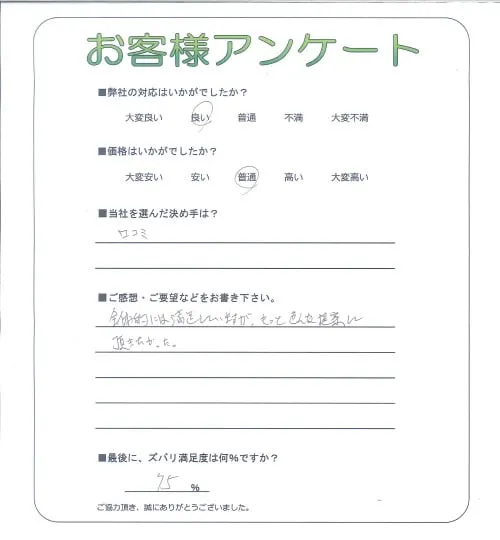 お客様アンケート
■弊社の対応はいかがでしたか？
大変良い 良い 普通 不満 大変不満
■価格はいかがでしたか？
大変安い 安い 普通 高い 大変高い
■当社を選んだ決め手は？
口コミ
■ご感想・ご要望などをお書き下さい。
全体的には満足していますが、もっと色んな提案し
頂きたかった。
■最後に、ズバリ満足度は何%ですか？
75 %
ご協力頂き、誠にありがとうございました。